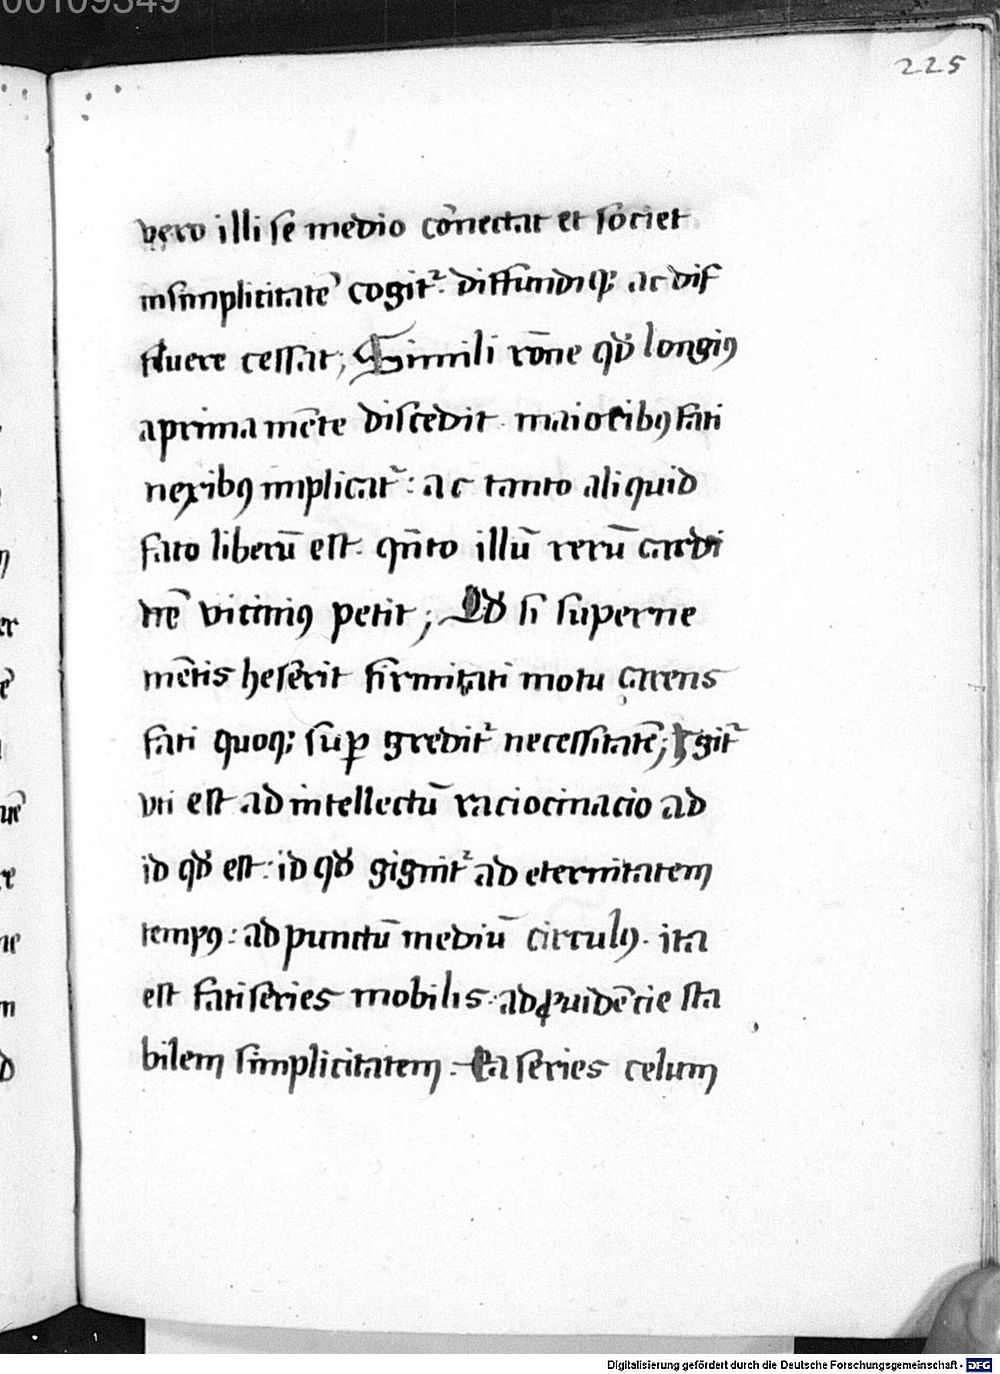 00109349
225
vero illi se medio cōnectat et societ
insimplicitatē cogit᷑. diffundiq; ac dif
fluere cessat; Simili rōne qđ longiꝰ
aprima mēte discedit. maioribꝰ fati
nexibꝰ implicat᷑: ac tanto aliquid
fato liberū est. qn̄to illū rerū cardi
nē viciniꝰ petit; Qđ si superne
mētis heserit firmitati motu carens
fati quoq; suꝑ gredit᷑ necessitatē; Igit᷑
vti est ad intellectū raciocinacio ad
id qđ est: id qđ gignit᷑ ad eternitatem
tempꝰ: ad punctū mediū circulꝰ. ita
est fati series mobilis. ad ꝓuidēcie sta
bilem simplicitatem. Ea series celum
Digitalisierung gefördert durch die Deutsche Forschungsgemeinschaft - DFG